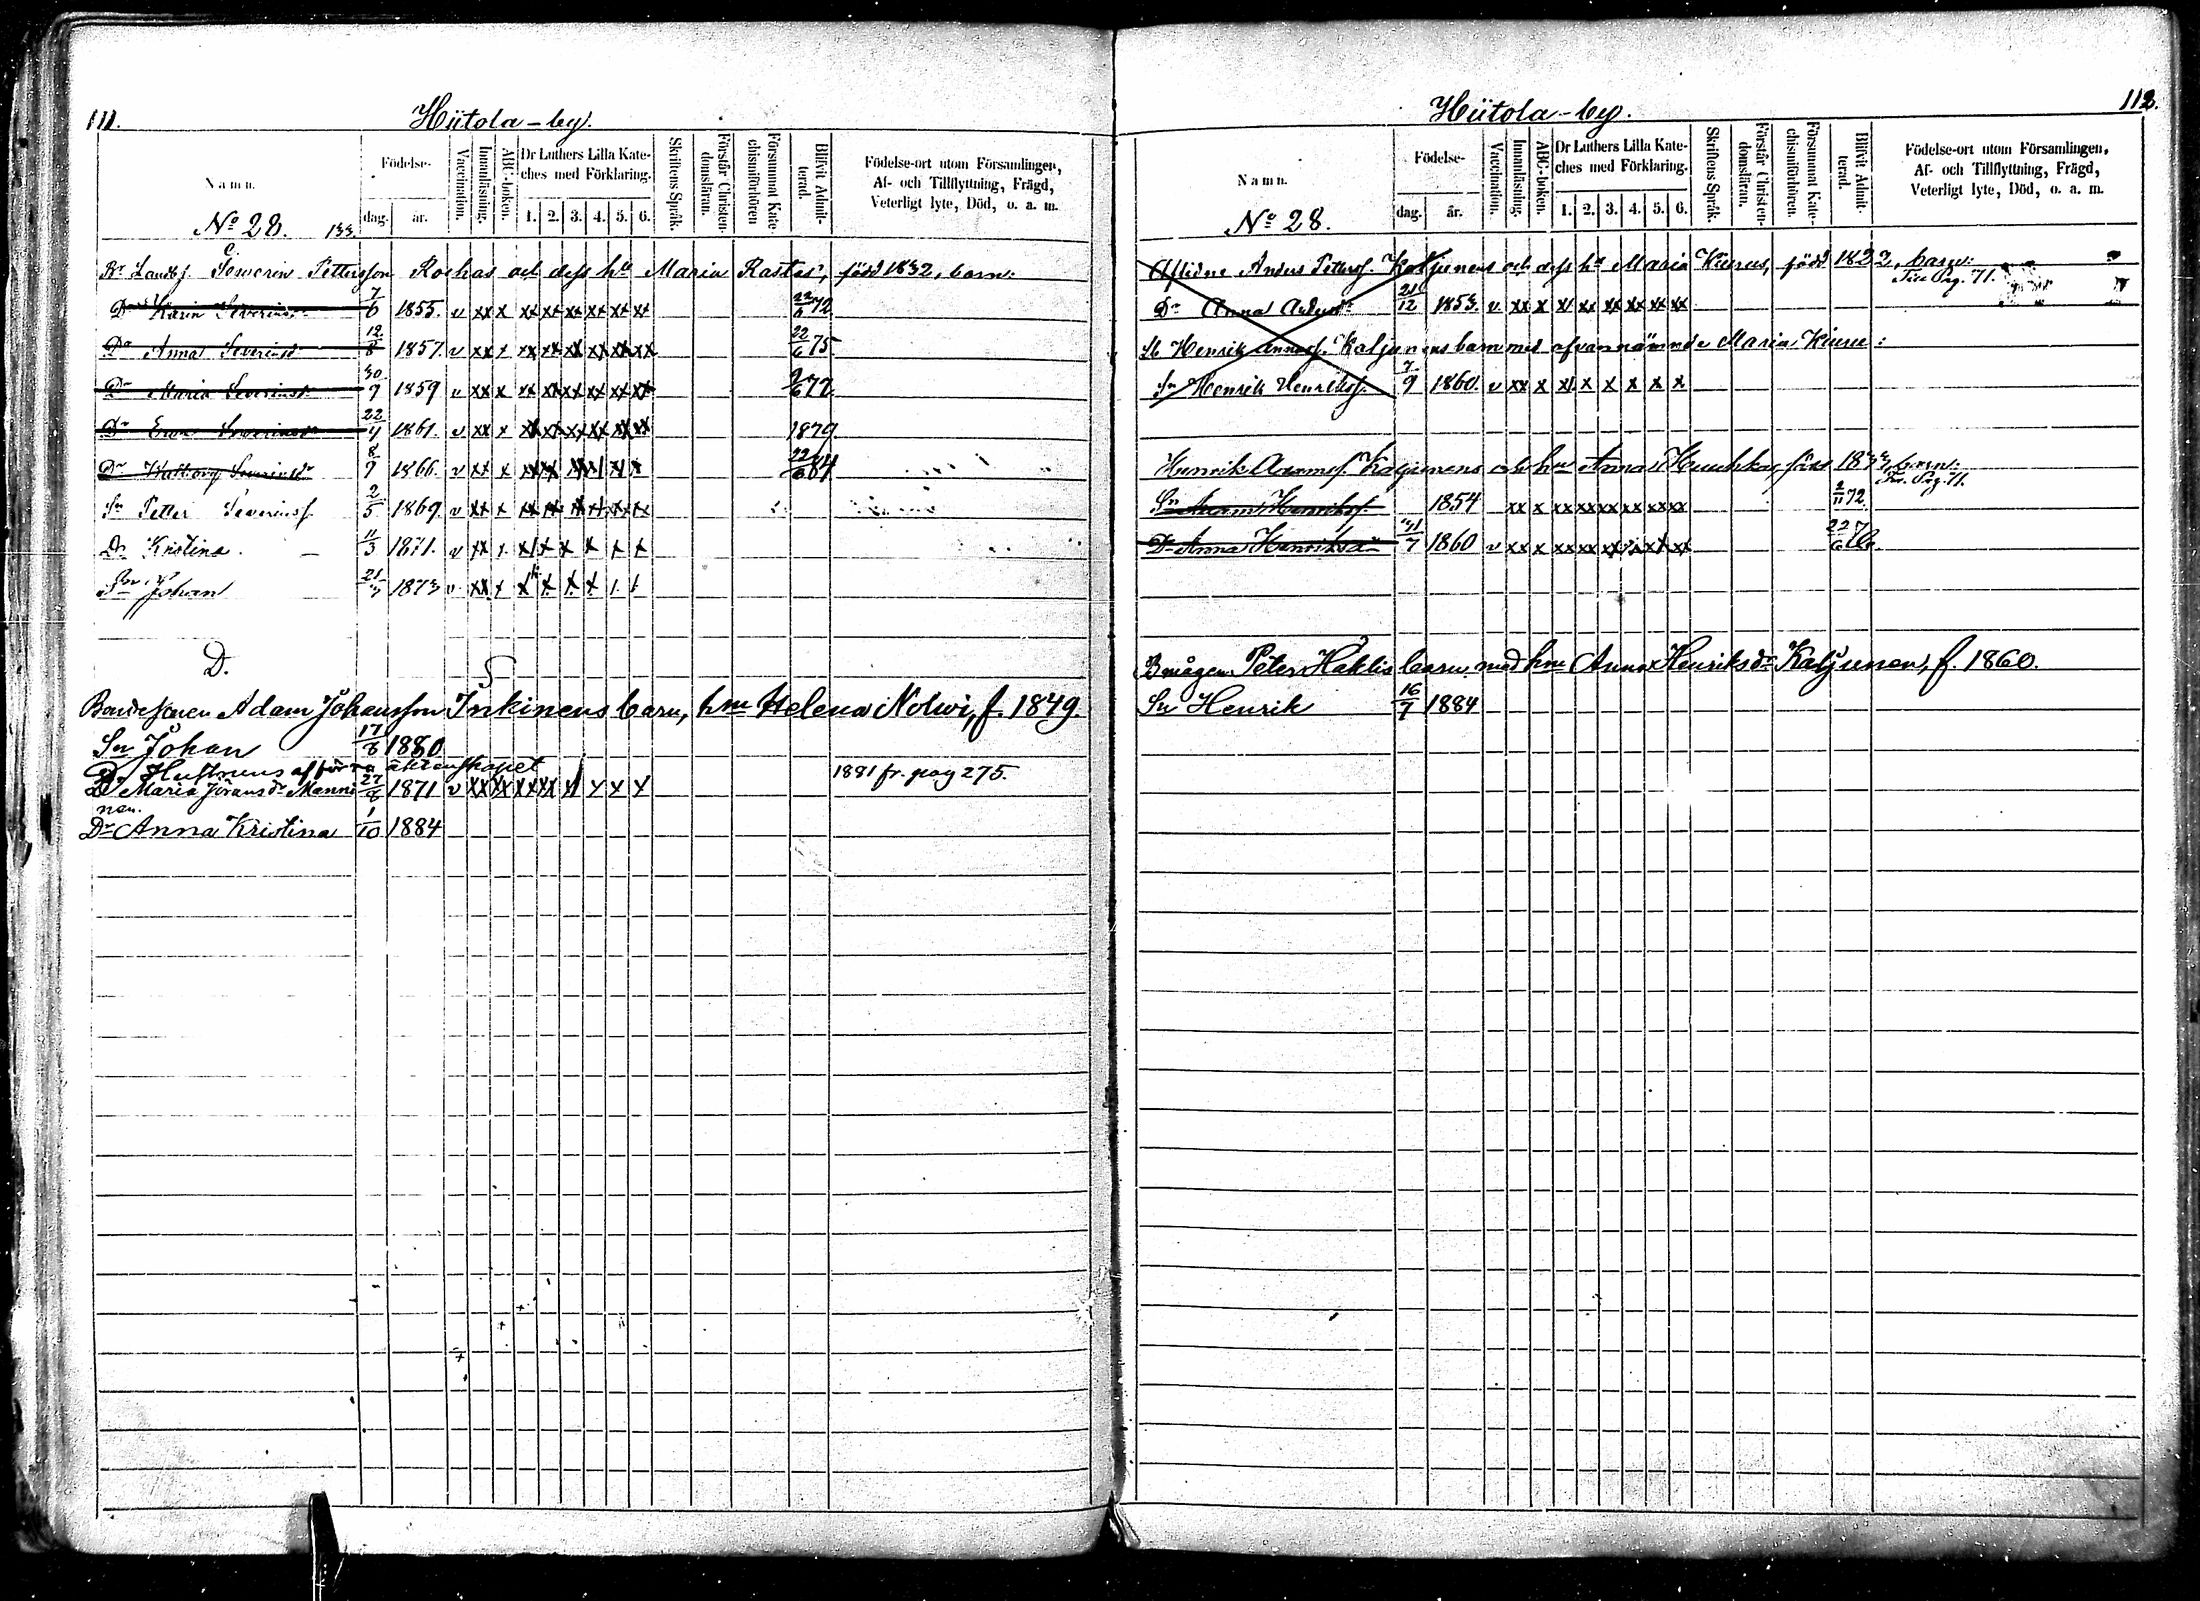 111.
Hiitola-by.
Namn.
Födelse-
dag.
år.
Vaccination.
Innanläsning.
ABC-boken.
Dr Luthers Lilla Kate-
ches med Förklaring.
1. 2. 3. 4. 5. 6.
Skriftens Språk.
Förstår Christen-
domsläran.
Försummat Kate-
chismiförhören
Blifvit Admit-
terad.
Födelse-ort utom Församlingen,
Af- och Tillflyttning, Frägd,
Veterligt lyte, Död, o. a. m.
No 28. 133.
Br Landbj. Sewerin Pettersson Rochas och dess hu Maria Rastas, född 1832, barn:
Dr Karin Severinsdr 7/6 1855. v xx x xx xx xx xx xx xx 22/6 72
Dr Anna Severinsd 12/8 1857. v xx x x xx xx xx xx xx 22/6 75
Dr Maria Severinsd 30/9 1859 v xx x xx xx xx xx xx xx 2/6 77
Dr Eva Severinsdr 22/4 1861. v xx x xx xx xx xx xx xx 1879
Dr Walborg Severinsdr 8/7 1866. v xx x 22/6 84
Sn Petter Severinsf. 2/5 1869. v xx x xx xx xx xx xx xx
Dr Kristina 11/3 1871. v xx x x x x x x x
Sn Johan 21/3 1873 v xx x x x x x
D.
Bondesonen Adam Johansson Inkinens barn, hm Helena Nolwi, f. 1849.
Sn Johan 17/6 1880
Hustruns af förra äktenskapet
Dr Maria Jöransdr Manni- 27/8 1871 v xx xx x xx xx x x x 1881 fr. pag 275.
nen.
Dr Anna Kristina 1/10 1884
112.
Hiitola-by.
Namn.
Födelse-
dag.
år.
Vaccination.
Innanläsning.
ABC-boken.
Dr Luthers Lilla Kate-
ches med Förklaring.
1. 2. 3. 4. 5. 6.
Skriftens Språk.
Förstår Christen-
domsläran.
Försummat Kate-
chismiförhören.
Blifvit Admit-
terad.
Födelse-ort utom Församlingen,
Af- och Tillflyttning, Frägd,
Veterligt lyte, Död, o. a. m.
No 28.
Aflidne Anders Petterss. Kaljunens och dess hu Maria Kiurus, född 1822, barn:
Pag. 71.
Dr Anna Andersdr 21/12 1853. v xx x xx xx xx xx xx xx
Henrik Kaljunens barn med ofvannämnde Maria Kiuru:
Sn Henrik Henrikss. 7/9 1860. v xx x xx x x x x x
Henrik Kaljunens och hu Anna född barn:
Pag. 71.
Sn Henrikss. 1854 xx x xx xx xx xx xx xx 2/11 72.
Dr Anna Henriksdr 1860 v xx x xx xx xx xx xx 22/6
Bmågen Peter Häklis barn med hm Anna Henriksdr Kaljunen, f. 1860.
Sn Henrik 16/7 1884